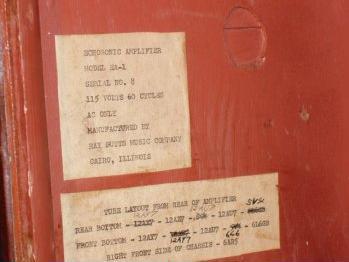 ECHOSONIC AMPLIFIER
MODEL EA-1
SERIAL NO. 8
115 VOLTS 60 CYCLES
AC ONLY
MANUFACTURED BY
RAY BUTTS MUSIC COMPANY
CAIRO, ILLINOIS
TUBE LAYOUT FROM REAR OF AMPLIFIER
REAR BOTTOM - 12AX7 - 12AX7 - 12AU7 -
FRONT BOTTOM - 12AX7 - - 12AU7 - - 6L6GB
12AY7 6L6
RIGHT FRONT SIDE OF CHASSIS - 6AR5